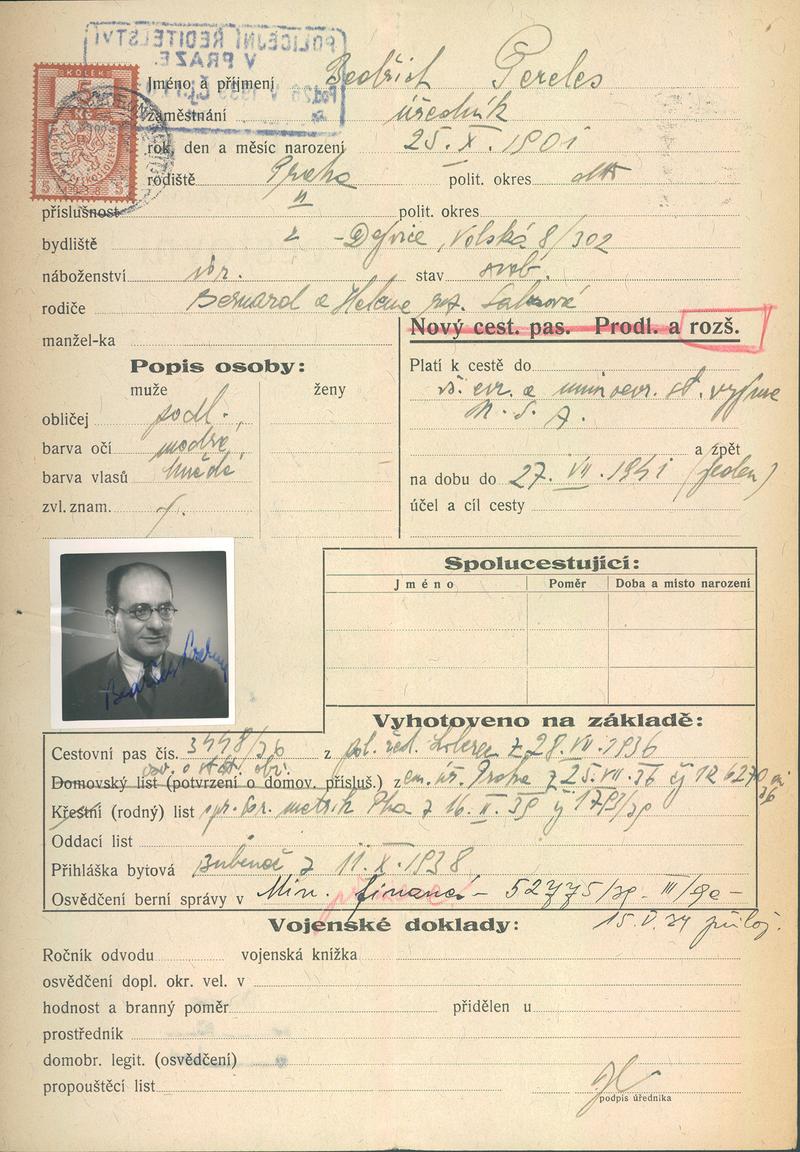 POLICEJNÍ ŘEDITELSTVÍ
V PRAZE.
KOLEK
5
Kč
5 5
Jméno a příjmení Bedřich Pereles
zaměstnání úředník
rok, den a měsíc narození 25. X. 1901
rodiště Praha polit. okres
příslušnost " polit. okres
bydliště - Dejvice, Volská 8/302
náboženství isr. stav svob.
rodiče Bernard a Helene roz.
manžel-ka
Nový cest. pas. Prodl. a rozš.
Popis osoby:
muže ženy
Platí k cestě do
vš. evr. a mimoevr. st. vyjma
obličej podl.
barva očí modré
a zpět
barva vlasů hnědé
na dobu do 27. VII. 1941 (jeden)
zvl. znam. účel a cíl cesty
Spolucestující:
Jméno Poměr Doba a místo narození
Vyhotoveno na základě:
Cestovní pas čís. 3448/36 z pol. řed. z 28. VII. 1936
osv. o stát. obč.
Domovský list (potvrzení o domov. přísluš.) z em. úř. Praha z 25. VII. 36 čj
Křestní (rodný) list metrik Pha z 16. V. 39 čj 1793/39
Oddací list
Přihláška bytová Bubeneč z 11. X. 1938
Osvědčení berní správy v Min. financí - 52775/39 - III/9a -
Vojenské doklady:
Ročník odvodu vojenská knížka
osvědčení dopl. okr. vel. v
hodnost a branný poměr přidělen u
prostředník
domobr. legit. (osvědčení)
propouštěcí list
podpis úředníka